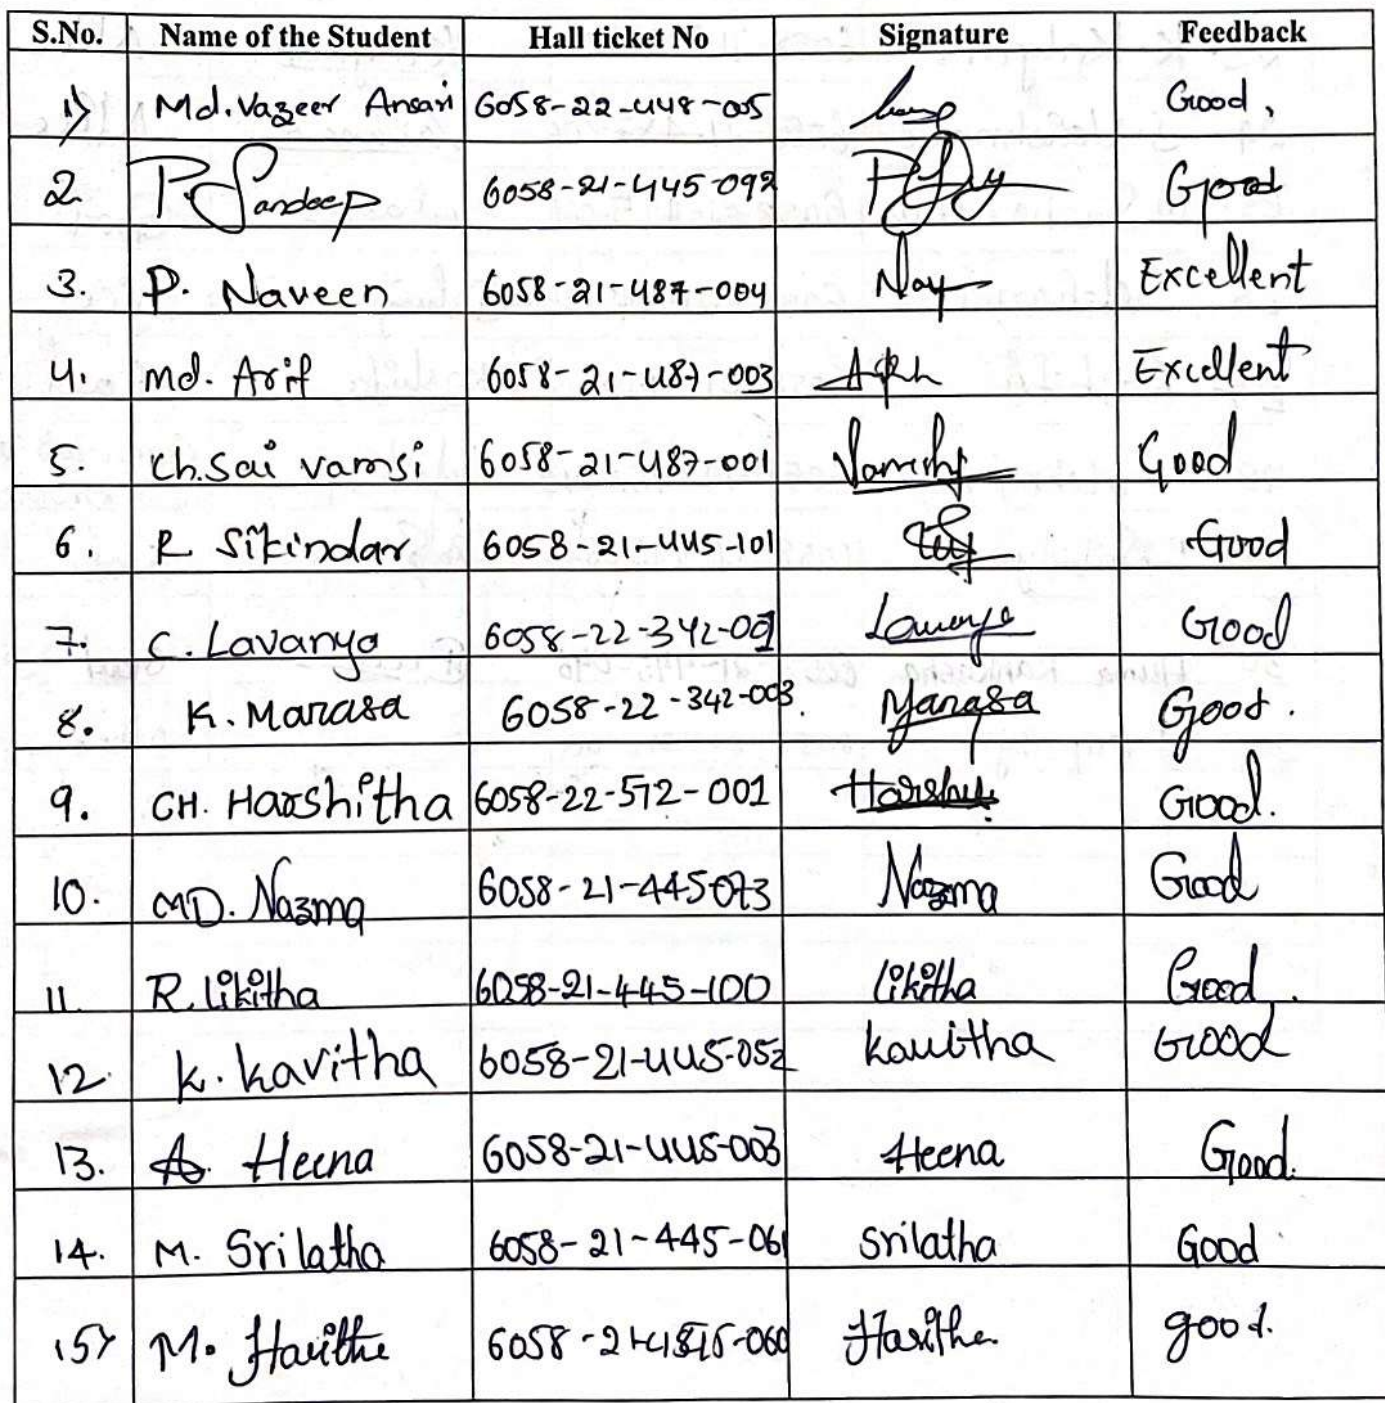 S.No. Name of the Student Hall ticket No Signature Feedback
1) Md. Vazeer Ansari 6058-22-448-005 Good,
2. P. Sandeep 6058-21-445-092 Good
3. P. Naveen 6058-21-487-004 Nav Excellent
4. Md. Arif 6058-21-487-003 Excellent
5. Ch. Sai vamsi 6058-21-487-001 Vamshi Good
6. R Sikindar 6058-21-445-101 Good
7. C. Lavanya 6058-22-342-001 Lavanya Good
8. K. Manasa 6058-22-342-003. Manasa Good.
9. CH. Harshitha 6058-22-572-001 Good.
10. MD. Nazma 6058-21-445073 Nazma Good
11. R. likitha 6058-21-445-100 likitha Good.
12. K. Kavitha 6058-21-445-052 Kavitha Good
13. A. Heena 6058-21-445-003 Heena Good.
14. M. Srilatha 6058-21-445-061 Srilatha Good
15) M. Haritha Haritha good.